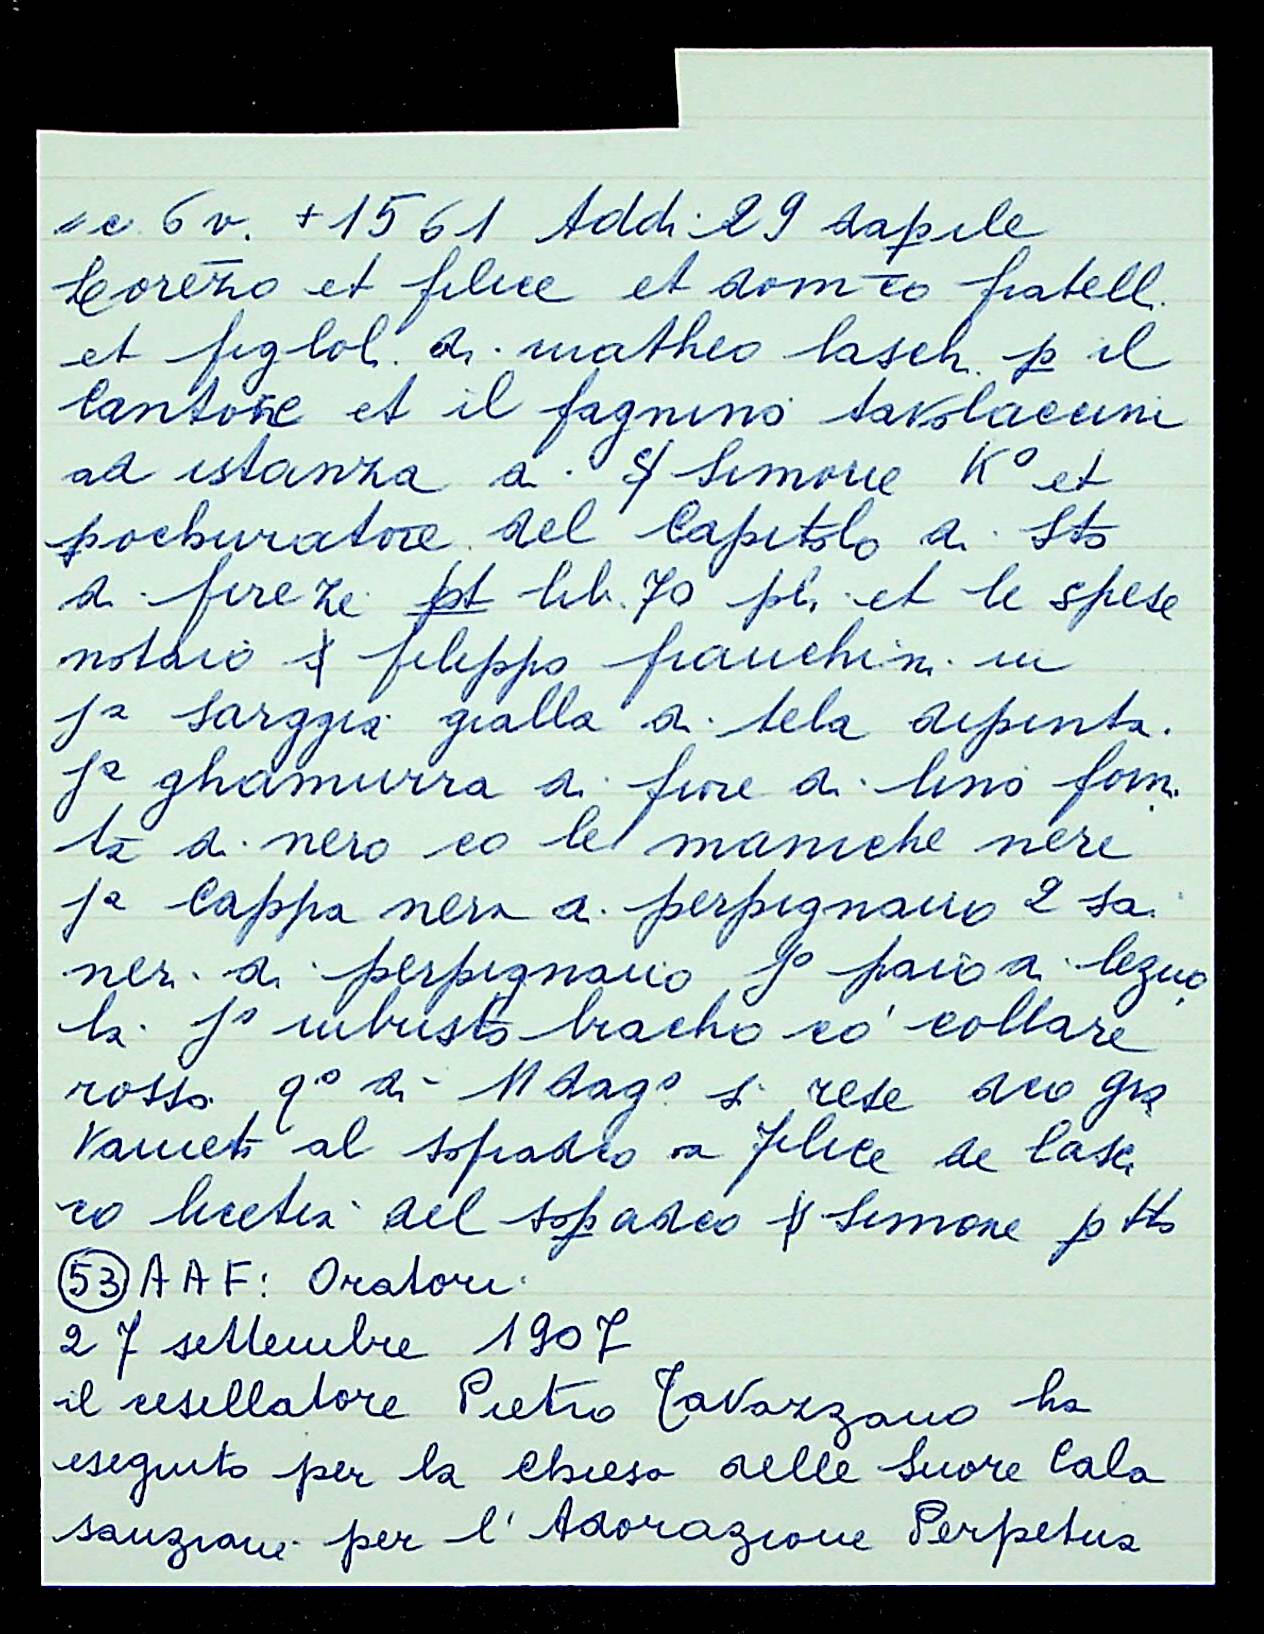 c 6 v. + 1561 Addi 29 dapile
Lorēzo et felice et dom̄co fratelli
et figloli di matheo laschi p il
Cantore et il fagnino tavolaccini
ad istanza di S Simone K° et
pochuratore del Capitolo di Sto
di fireze pt lib. 70 pli et le spese
notaio S filippo franchini in
1ª sarggia gialla di tela dipinta.
1ª ghamurra di fiore di lino forni
ta di nero co le maniche nere
1ª Cappa nera di perpignano 2 sai
neri di perpignano 1° paio di lezuo
la 1° inbusto biacho co' collare
rosso q° di 11 dag° si rese dco gra
vameti al sopradco a felice de lasci
co licetia del sopadco S Simone p tto
(53) AAF: Oratori
27 settembre 1907
il cesellatore Pietro Tavazzano ha
eseguito per la Chiesa delle Suore Cala
sanziane per l'Adorazione Perpetua